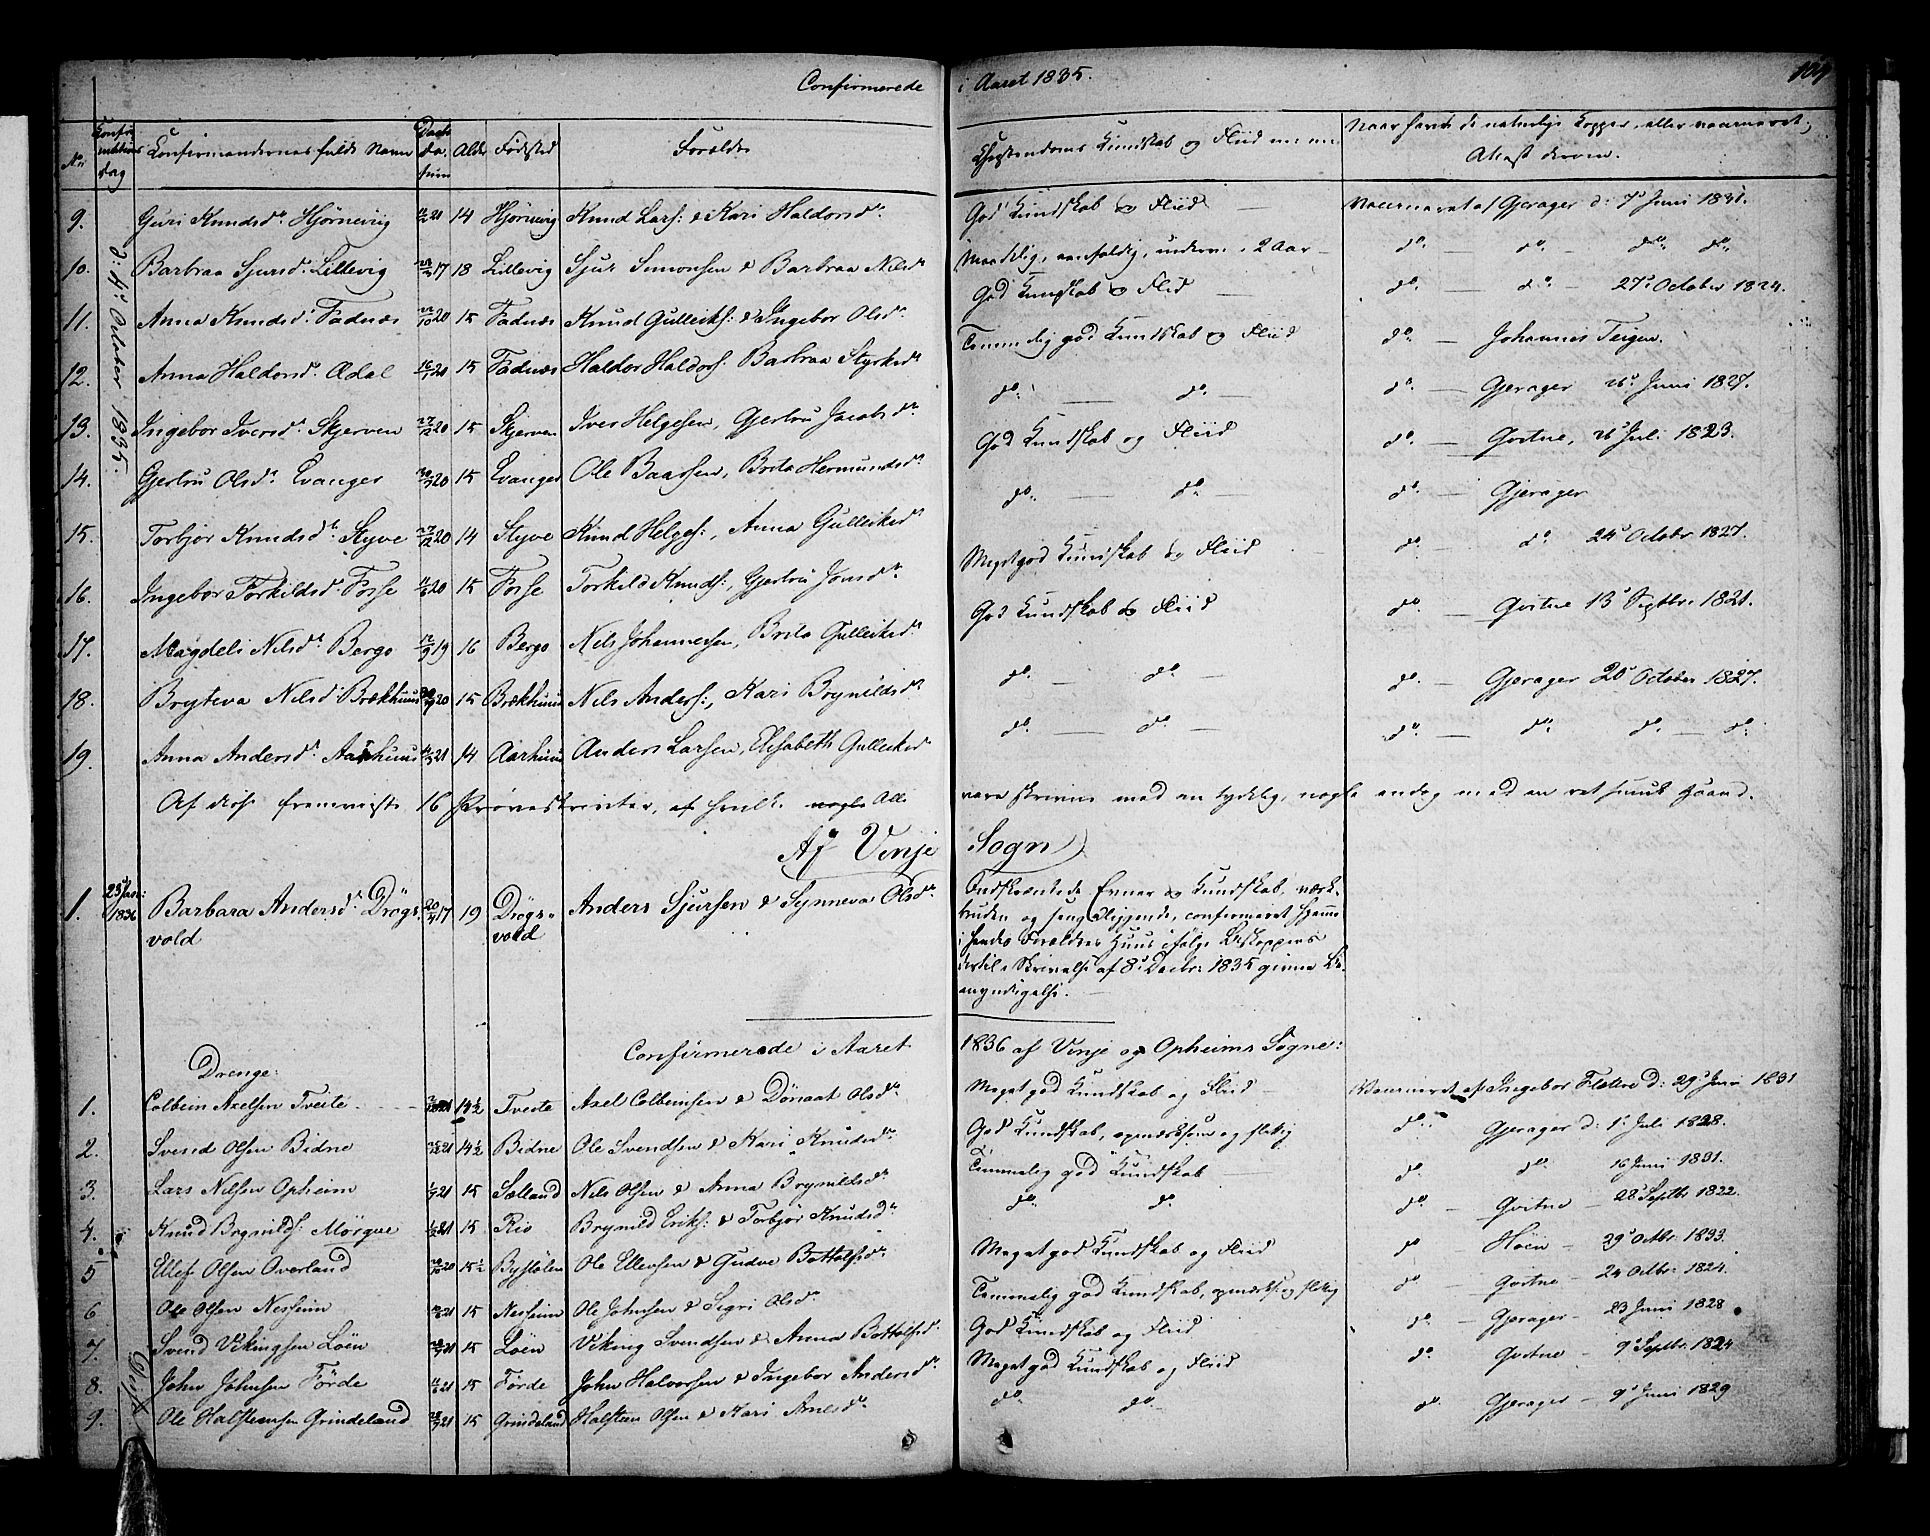 Confirmerede i Aaret 1835.
No Confirmations dag Confirmandernes fulde Navn Alder Fødested Forældre Christendoms Kundskab og Fliid Naar havt de naturlige Kopper, eller vaccineret;
Attest derom.
d: 4de October 1835.
9. Guri Knudsdr Hjørnevig 21 14 Hjørnevig Knud Lars: & Kari Haldorsdr God Kundskab og Fliid — Vaccineret af Gjerager d: 7de Juni 1831.
10. Barbraa Sjursdr Lillevig 17 18 Lillevig Sjur Simonsen & Barbraa Nilsdr Maadelig, i 2 Aar — do. do. do. do.
11. Anna Knudsdr Fadnæs 20 15 Fadnæs Knud Gulleiks: & Ingebor Olsdr God Kundskab og Fliid — do. — do. — 27de October 1824.
12. Anna Haldorsdr Ædal 21 15 Fadnæs Haldor Haldors: Barbraa Styrksdr Temmelig god Kundskab og Fliid do. — Johannes Teigen.
13. Ingebor Iversdr Skjerven 20 15 Skjerven Iver Helgesen, Gjertru Jacobsdr do. — do. do. — Gjerager 26de Juni 1827.
14. Gjertru Olsdr Evanger 20 15 Evanger Ole Baarsen, Brita Hermundsdr God Kundskab og Fliid do. — Gvitne, 26de Juli 1823.
15. Torbjør Knudsdr Styve 20 14 Styve Knud Helges:, Anna Gulleiksdr do. — do. — do. — Gjerager
16. Ingebor Torkildsdr Fosse 20 15 Fosse Torkild Knuds:, Gjertru Jonsdr Meget god Kundskab og Fliid do. — do. 24de Octobr 1827.
17. Magdeli Nilsdr Bergo 19 16 Bergo Nils Johannessen, Brita Gulleiksdr God Kundskab og Fliid do. — Gvitne 13de Septbr. 1821.
18. Bryteva Nilsdr Brækhuus 20 15 Brækhuus Nils Anders:, Kari Brynildsdr do. — do. — do. — Gjerager 20de October 1827.
19. Anna Andersdr Aarhuus 21 14 Aarhuus Anders Larsen, Elisabeth Gulleiksdr do. — do. — do. do. do. — do.
Af disse fremviiste 16 Prøveskrivter, af hvilke nogle Alle vare skrevne med en tydelig, nogle endog med en ret smuk Haand.
Af Vinje Sogn
1. 1836 Barbara Andersdr Drøgsvold 17 19 Drøgsvold Anders Sjursen & Synneva Olsdr Indskrænkede Evner og Kundskab,
og sengeliggende, confirmeret hjemme
i hendes Forældres Huus ifølge Biskoppens
dertil i Skrivelse af 8de Decbr. 1835 givne Be-
myndigelse.
Confirmerede i Aaret 1836 af Vinje og Opheims Sogne:
Drenge:
1. Colbein Axelsen Tveite 21 14½ Tveite Axel Colbeinsen & Dønaat Olsdr Meget god Kundskab og Fliid — Vaccineret af Ingebor Flatere d: 29de Juni 1831
2. Svend Olsen Bidne 21 14½ Bidne Ole Svendsen & Kari Knudsdr God Kundskab, opmærksom og flittig do. Gjerager d: 1de Juli 1828.
3. Lars Nilsen Opheim 21 15 Sælland Nils Olsen & Anna Brynildsdr Temmelig god Kundskab do. do. 16 Juni 1831.
4. Knud Brynilds: Mørque 21 15 Rio Brynild Eriks: & Torbjør Knudsdr do. do. do. — Gvitne — 28de Septbr 1822.
5 Ellef Olsen Overland 20 15½ Bystølen Ole Ellevsen & Gudve Bottolfsdr Meget god Kundskab og Fliid do — Høen — 29de Octbr. 1833.
6 Ole Olsen Nesheim 21 15 Nesheim Ole Johnsen & Sigri Olsdr Temmelig god Kundskab, opmærks: og flittig do — Gvitne — 24 Octbr. 1824.
7. Svend Vikingsen Løen 21 15 Løen Viking Svendsen & Anna Bottolfsdr God Kundskab og Fliid do. — Gjerager — 23 Juni 1828.
8. John Johnsen Førde 21 15 Førde John Halvorsen & Ingebor Andersdr Meget god Kundskab og Fliid do. Gvitne — 9de Septbr. 1824
9. Ole Halsteensen Grindeland 21 15 Grindeland Halsteen Olsen & Kari do. do. do. Gjerager — 9de Juni 1829